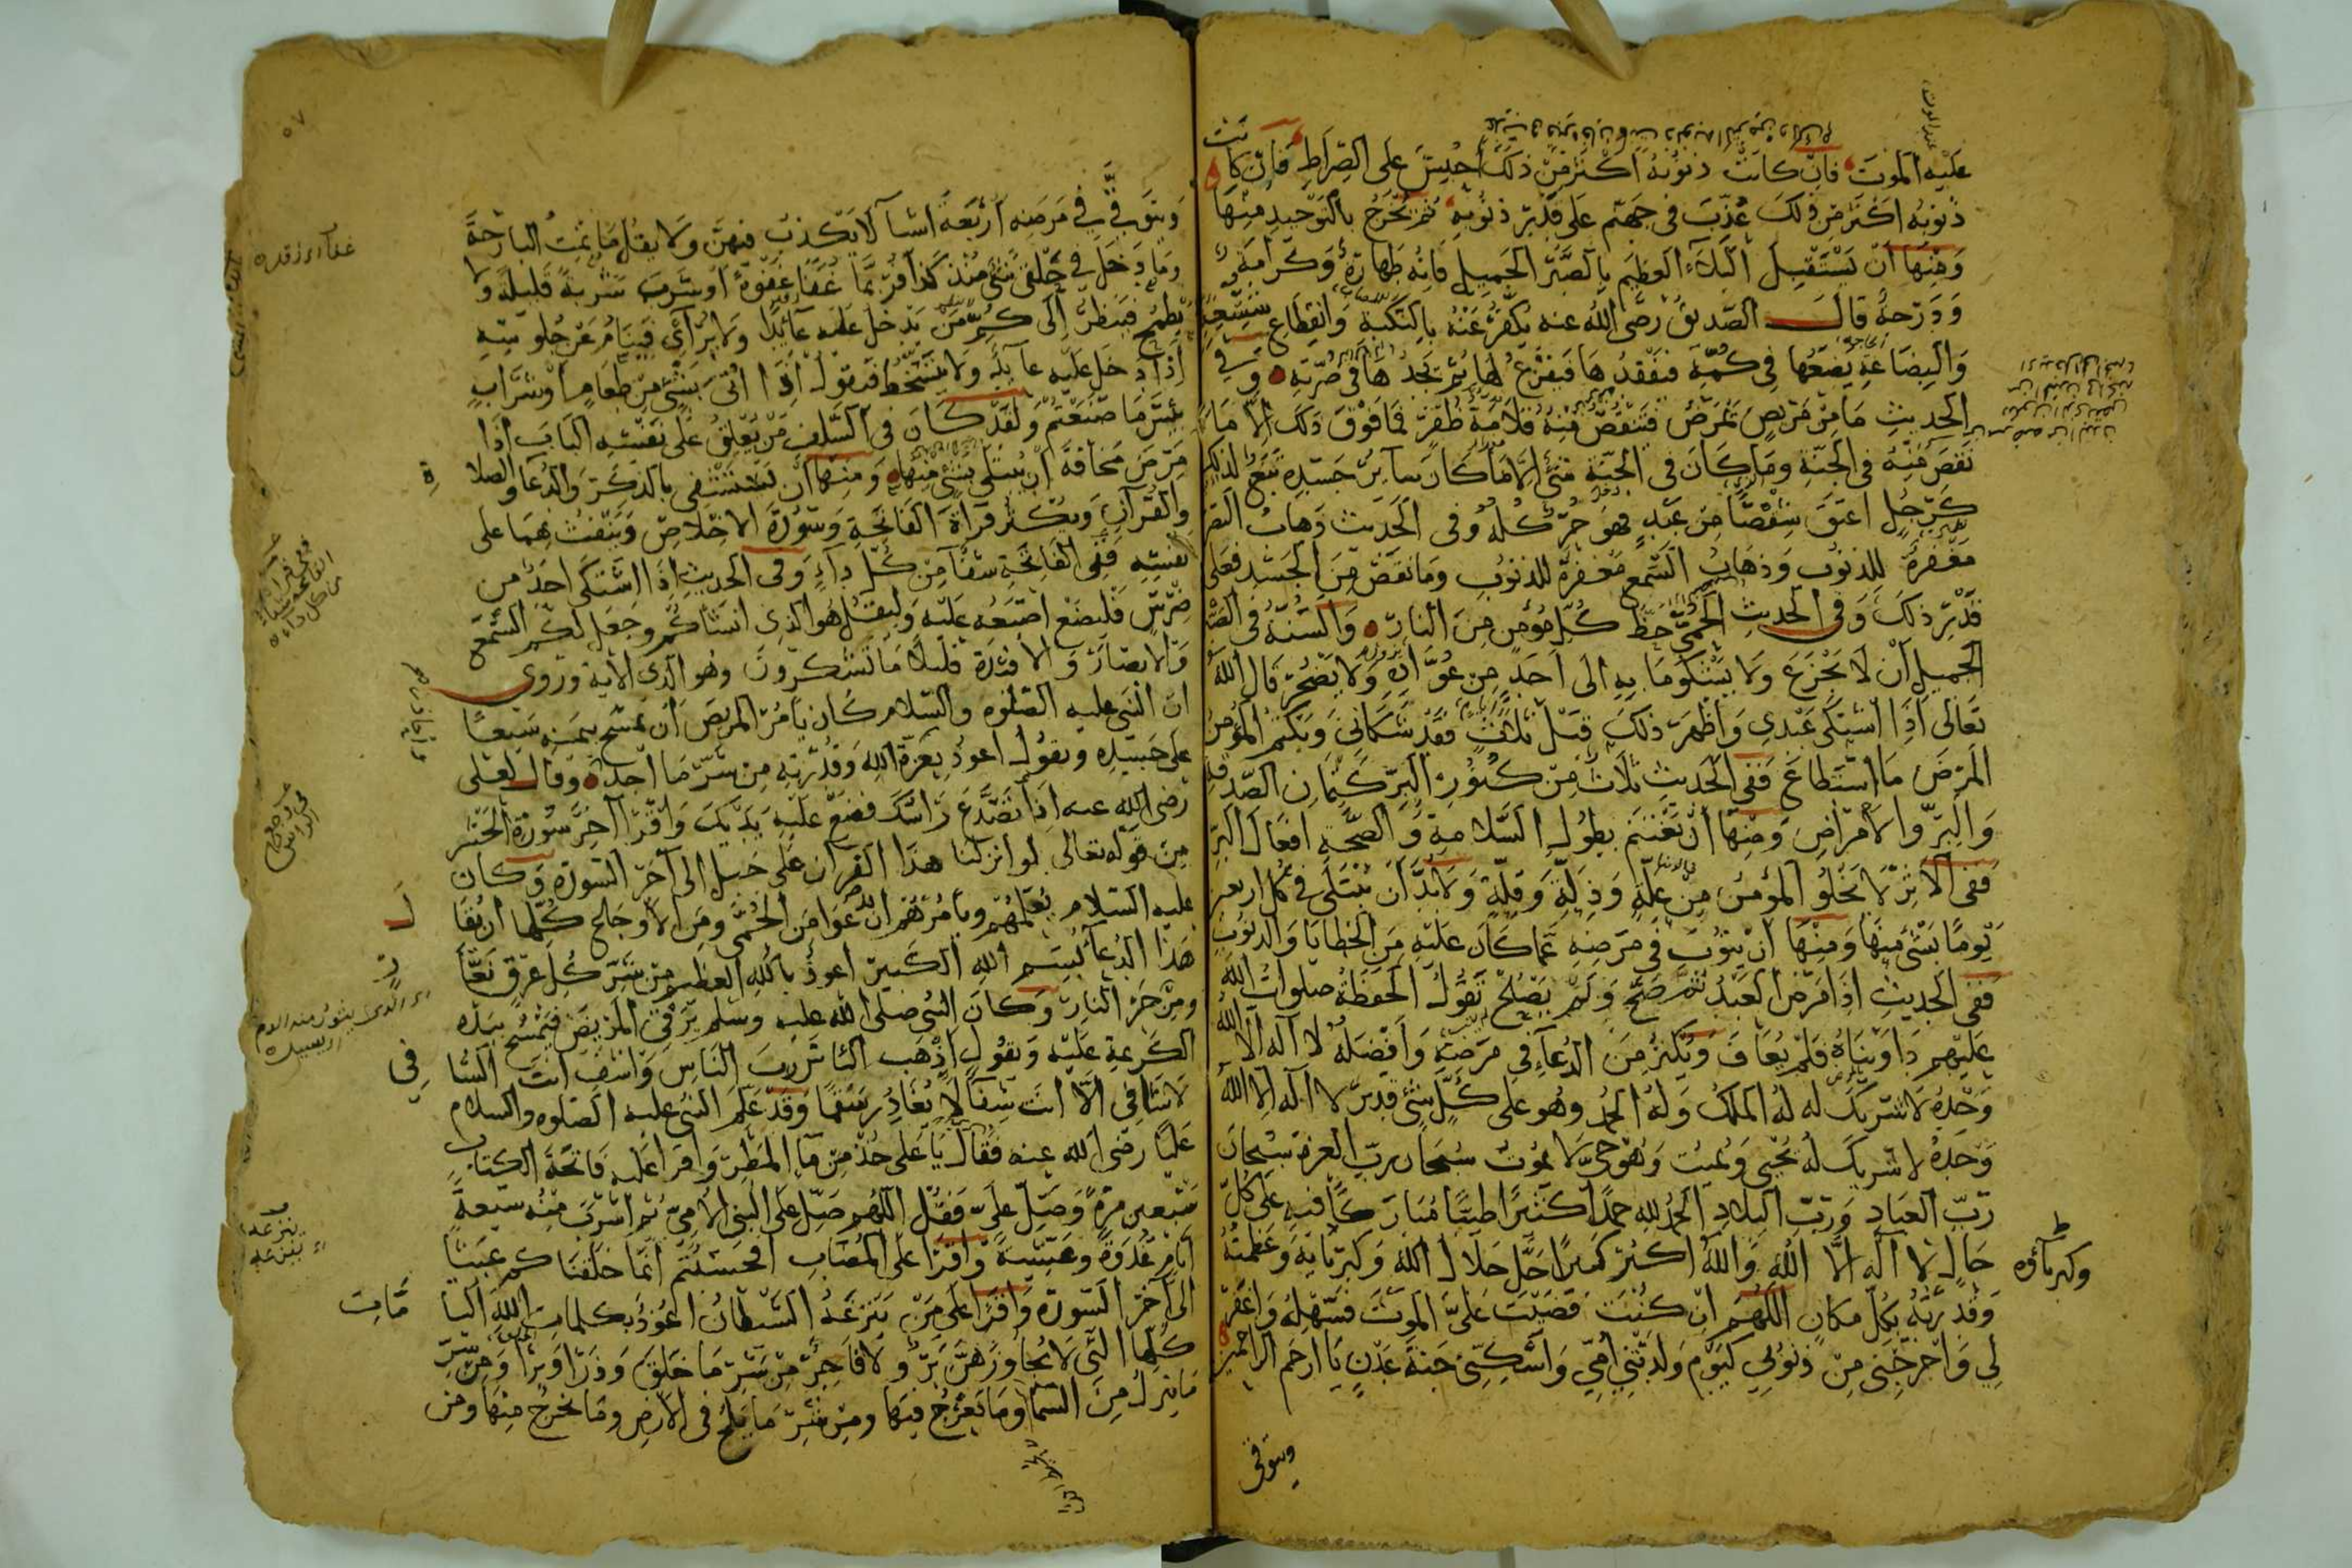 عليه الموت فان كانت ذنوبه اكثر من ذلك احبس على الصراط فان كانت
ذنوبه اكثر من ذلك عذب في جهنم على قدر ذنوبه ثم يخرج بالتوحيد منها
ومنها ان يستقبل البلاء العظيم بالصبر الجميل فانه طهارة وكرامة
ودرجة قال الصديق رضى الله عنه يكفر عنه بالنكبة وانقطاع شسعه
والبضاعة يضعها في كمه فيفقدها فيفزع لها ثم يجدها في ضرته وفي
الحديث ما من مريض يمرض فتنقص منه قلامة ظفر فما فوق ذلك الا ما
نقص منه في الجنة وما كان في الجنة شئ الا ما كان سائر جسده تبع لذلك
كرجل اعتق شقصا من عبد فهو حر كله وفي الحديث ذهاب البصر
مغفرة للذنوب وذهاب السمع مغفرة للذنوب وما نقص من الجسد فعلى
قدر ذلك وفي الحديث الحمى حظ كل مؤمن من النار والسنة في الصبر
الجميل ان لا يجزع ولا يشكو ما به الى احد من عواده ولا يضجر قال الله
تعالى اذا اشتكى عبدي واظهر ذلك قبل ثلاث فقد شكاني ويكتم المؤمن
المرض ما استطاع ففي الحديث ثلاث من كنوز البر كتمان الصدقة
والبر والامراض ومنها ان تغتنم بطول السلامة والصحة افعال البر
ففي الاثر لا يخلو المؤمن من علة وذلة وقلة ولا بد ان يبتلى في كل اربعين
يوما بشئ منها ومنها ان يتوب في مرضه عما كان عليه من الخطايا والذنوب
ففي الحديث اذا مرض العبد ثم صح ولم يصلح تقول الحفظة صلوات الله
عليهم داويناه فلم يعاف ويكثر من الدعاء في مرضه وافضله لا اله الا الله
وحده لا شريك له له الملك وله الحمد وهو على كل شئ قدير لا اله الا الله
وحده لا شريك له يحيي ويميت وهو حي لا يموت سبحان رب العزة سبحان
رب العباد ورب البلاد الحمد لله حمدا كثيرا طيبا مباركا فيه على كل
حال لا اله الا الله والله اكبر كبيرا جل جلال الله وكبريائه وعظمته
وقدرته بكل مكان اللهم ان كنت قضيت على الموت فسهله واغفر
لي واخرجني من ذنوبي كيوم ولدتني امي واسكني جنة عدن يا ارحم الراحمين
وكبرياؤه
ويتوقى
٥٧
ويتوقى في مرضه اربعة اشيا لا يكذب فيهن ولا يقل ما نمت البارحة
وما دخل في حلقي شئ منذ كذا فربما غفا غفوة او شرب شربة قليلة ولا
يطمع فينظر الى كم من يدخل عليه عائدا ولا يرائي فينام عن جلوسه
اذا دخل عليه عائد ولا يتسخط فيقول اذا اتى بشئ من طعام او شراب
بئس ما صنعتم ولقد كان في السلف من يغلق على نفسه الباب اذا
مرض مخافة ان يبتلى بشئ منها ومنها ان يستشفي بالذكر والدعا والصلاة
والقرآن ويكثر قراة الفاتحة وسورة الاخلاص وينفث بهما على
نفسه ففي الفاتحة شفا من كل داء وفي الحديث اذا اشتكى احد من
ضرس فليضع اصبعه عليه وليقل هو الذي انشاكم وجعل لكم السمع
والابصار والافئدة قليلا ما تشكرون وهو الذي الآية وروي
ان النبي عليه الصلوة والسلام كان يامر المريض ان يمسح بيمينه سبعا
على جسده ويقول اعوذ بعزة الله وقدرته من شر ما اجد وقال لعلى
رضى الله عنه اذا تصدع راسك فضع عليه يديك واقرا آخر سورة الحشر
من قوله تعالى لو انزلنا هذا القران على جبل الى آخر السورة وكان
عليه السلام يعلمهم ويامرهم ان يدعوا من الحمى ومن الاوجاع كلها ان يقال
هذا الدعا بسم الله الكبير اعوذ بالله العظيم من شر كل عرق نعار
ومن حر النار وكان النبي صلى الله عليه وسلم يرقى المريض فيمسح بيده
الكريمة عليه ويقول اذهب الباس رب الناس واشف انت الشافي
لا شافي الا انت شفا لا يغادر سقما وقد علم النبي عليه الصلوه والسلام
عليا رضى الله عنه فقال يا على خذ من ما المطر واقرا عليه فاتحة الكتاب
سبعين مرة وصل على فقل اللهم صل على النبي الامي ثم اشرب منه سبعة
ايام غدوة وعشية واقرا على المصاب افحسبتم انما خلقناكم عبثا
الى آخر السورة واقرا على من ينزغه الشيطان اعوذ بكلمات الله التامات
كلها التي لا يجاوزهن بر ولا فاجر من شر ما خلق وذرا وبرا ومن شر
ما ينزل من السما وما يعرج فيها ومن شر ما يلج في الارض وما يخرج منها ومن